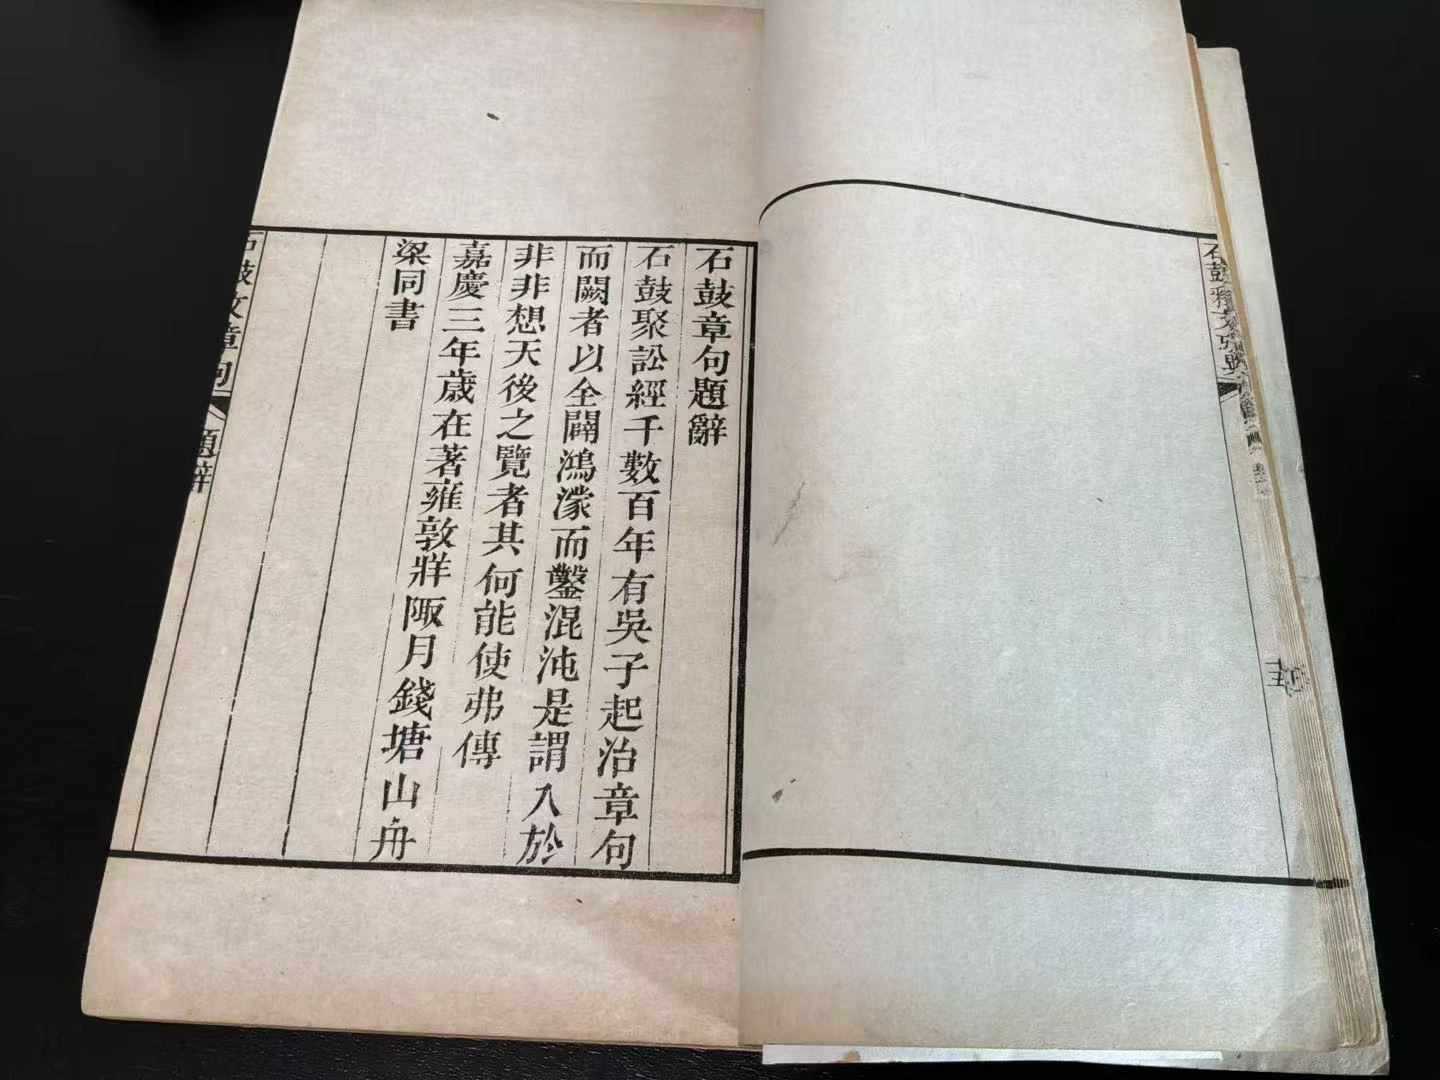 石鼓章句題辭
石鼓聚訟經千數百年有吳子起治章句
而闕者以全闢鴻濛而鑿混沌是謂入於
非非想天後之覽者其何能使弗傳
嘉慶三年歲在著雍敦牂陬月錢塘山舟
梁同書
石鼓文章句
題辭